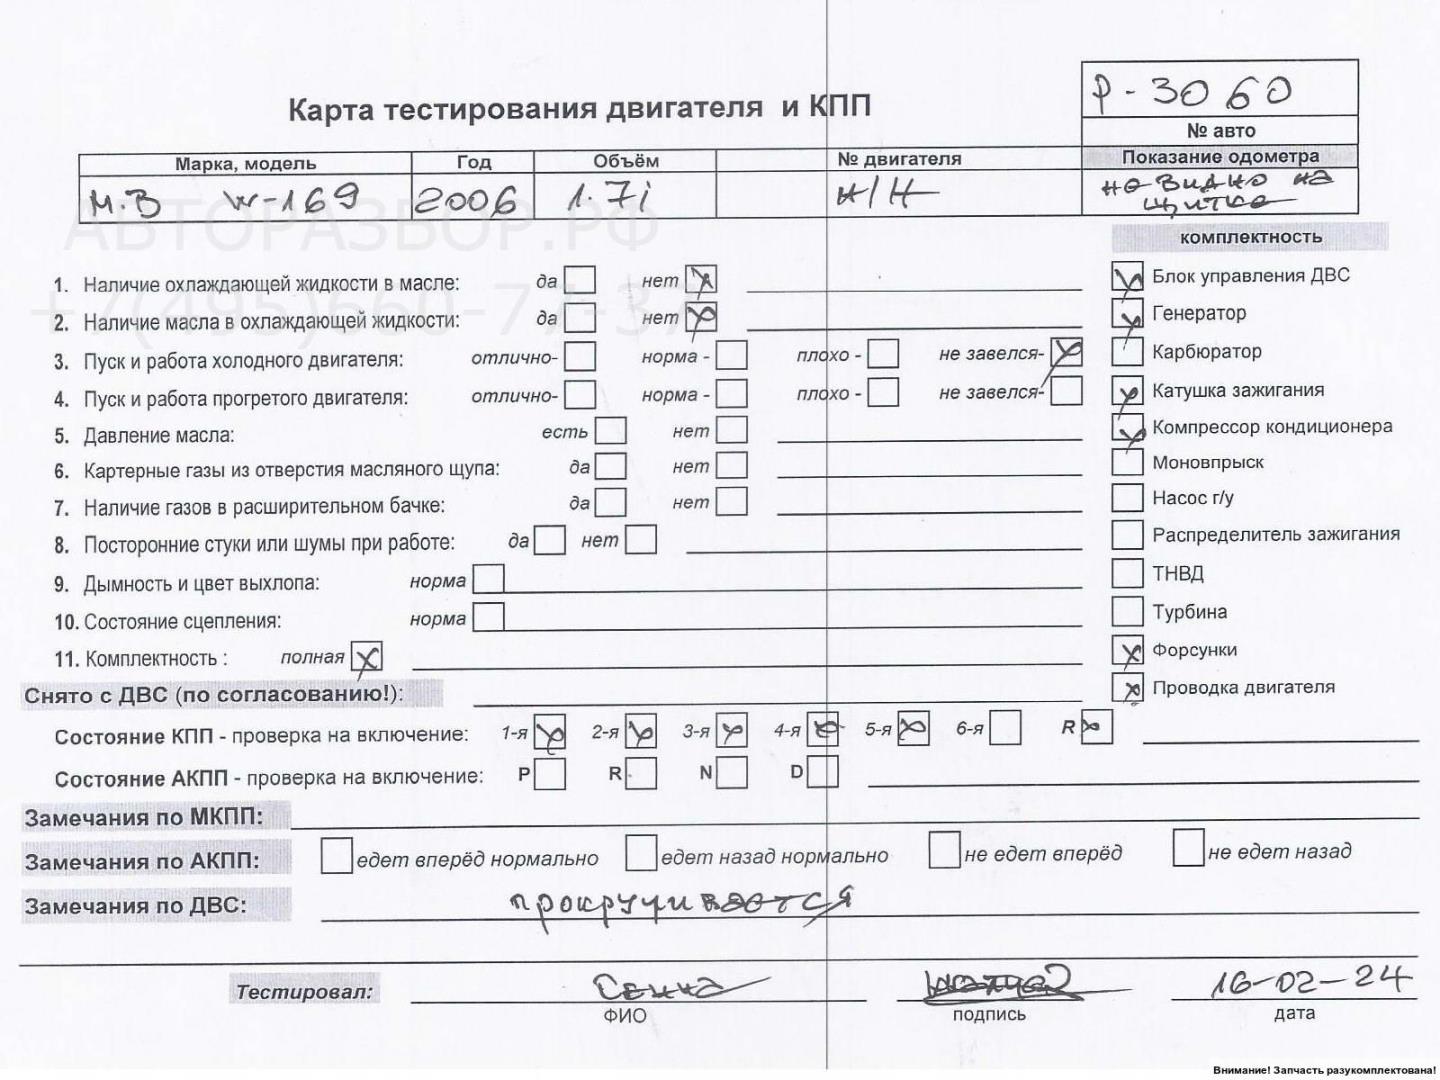 Р-3060
Карта тестирования двигателя и КПП
№ авто
Марка, модель Год Объём № двигателя Показание одометра
М.В W-169 2006 1.7i н/н не видно на щитке
АВТОРАЗБОР.РФ
+7(495)660-77-37
комплектность
1. Наличие охлаждающей жидкости в масле: да нет
Блок управления ДВС
2. Наличие масла в охлаждающей жидкости: да нет
Генератор
3. Пуск и работа холодного двигателя: отлично- норма - плохо - не завелся-
Карбюратор
4. Пуск и работа прогретого двигателя: отлично- норма - плохо - не завелся-
Катушка зажигания
5. Давление масла: есть нет
Компрессор кондиционера
6. Картерные газы из отверстия масляного щупа: да нет
Моновпрыск
7. Наличие газов в расширительном бачке: да нет
Насос г/у
8. Посторонние стуки или шумы при работе: да нет
Распределитель зажигания
9. Дымность и цвет выхлопа: норма
ТНВД
10. Состояние сцепления: норма
Турбина
11. Комплектность : полная
Форсунки
Снято с ДВС (по согласованию!):
Проводка двигателя
Состояние КПП - проверка на включение: 1-я 2-я 3-я 4-я 5-я 6-я R
Состояние АКПП - проверка на включение: P R N D
Замечания по МКПП:
Замечания по АКПП: едет вперёд нормально едет назад нормально не едет вперёд не едет назад
Замечания по ДВС: прокручивается
Тестировал: 16-02-24
ФИО подпись дата
Внимание! Запчасть разукомплектована!